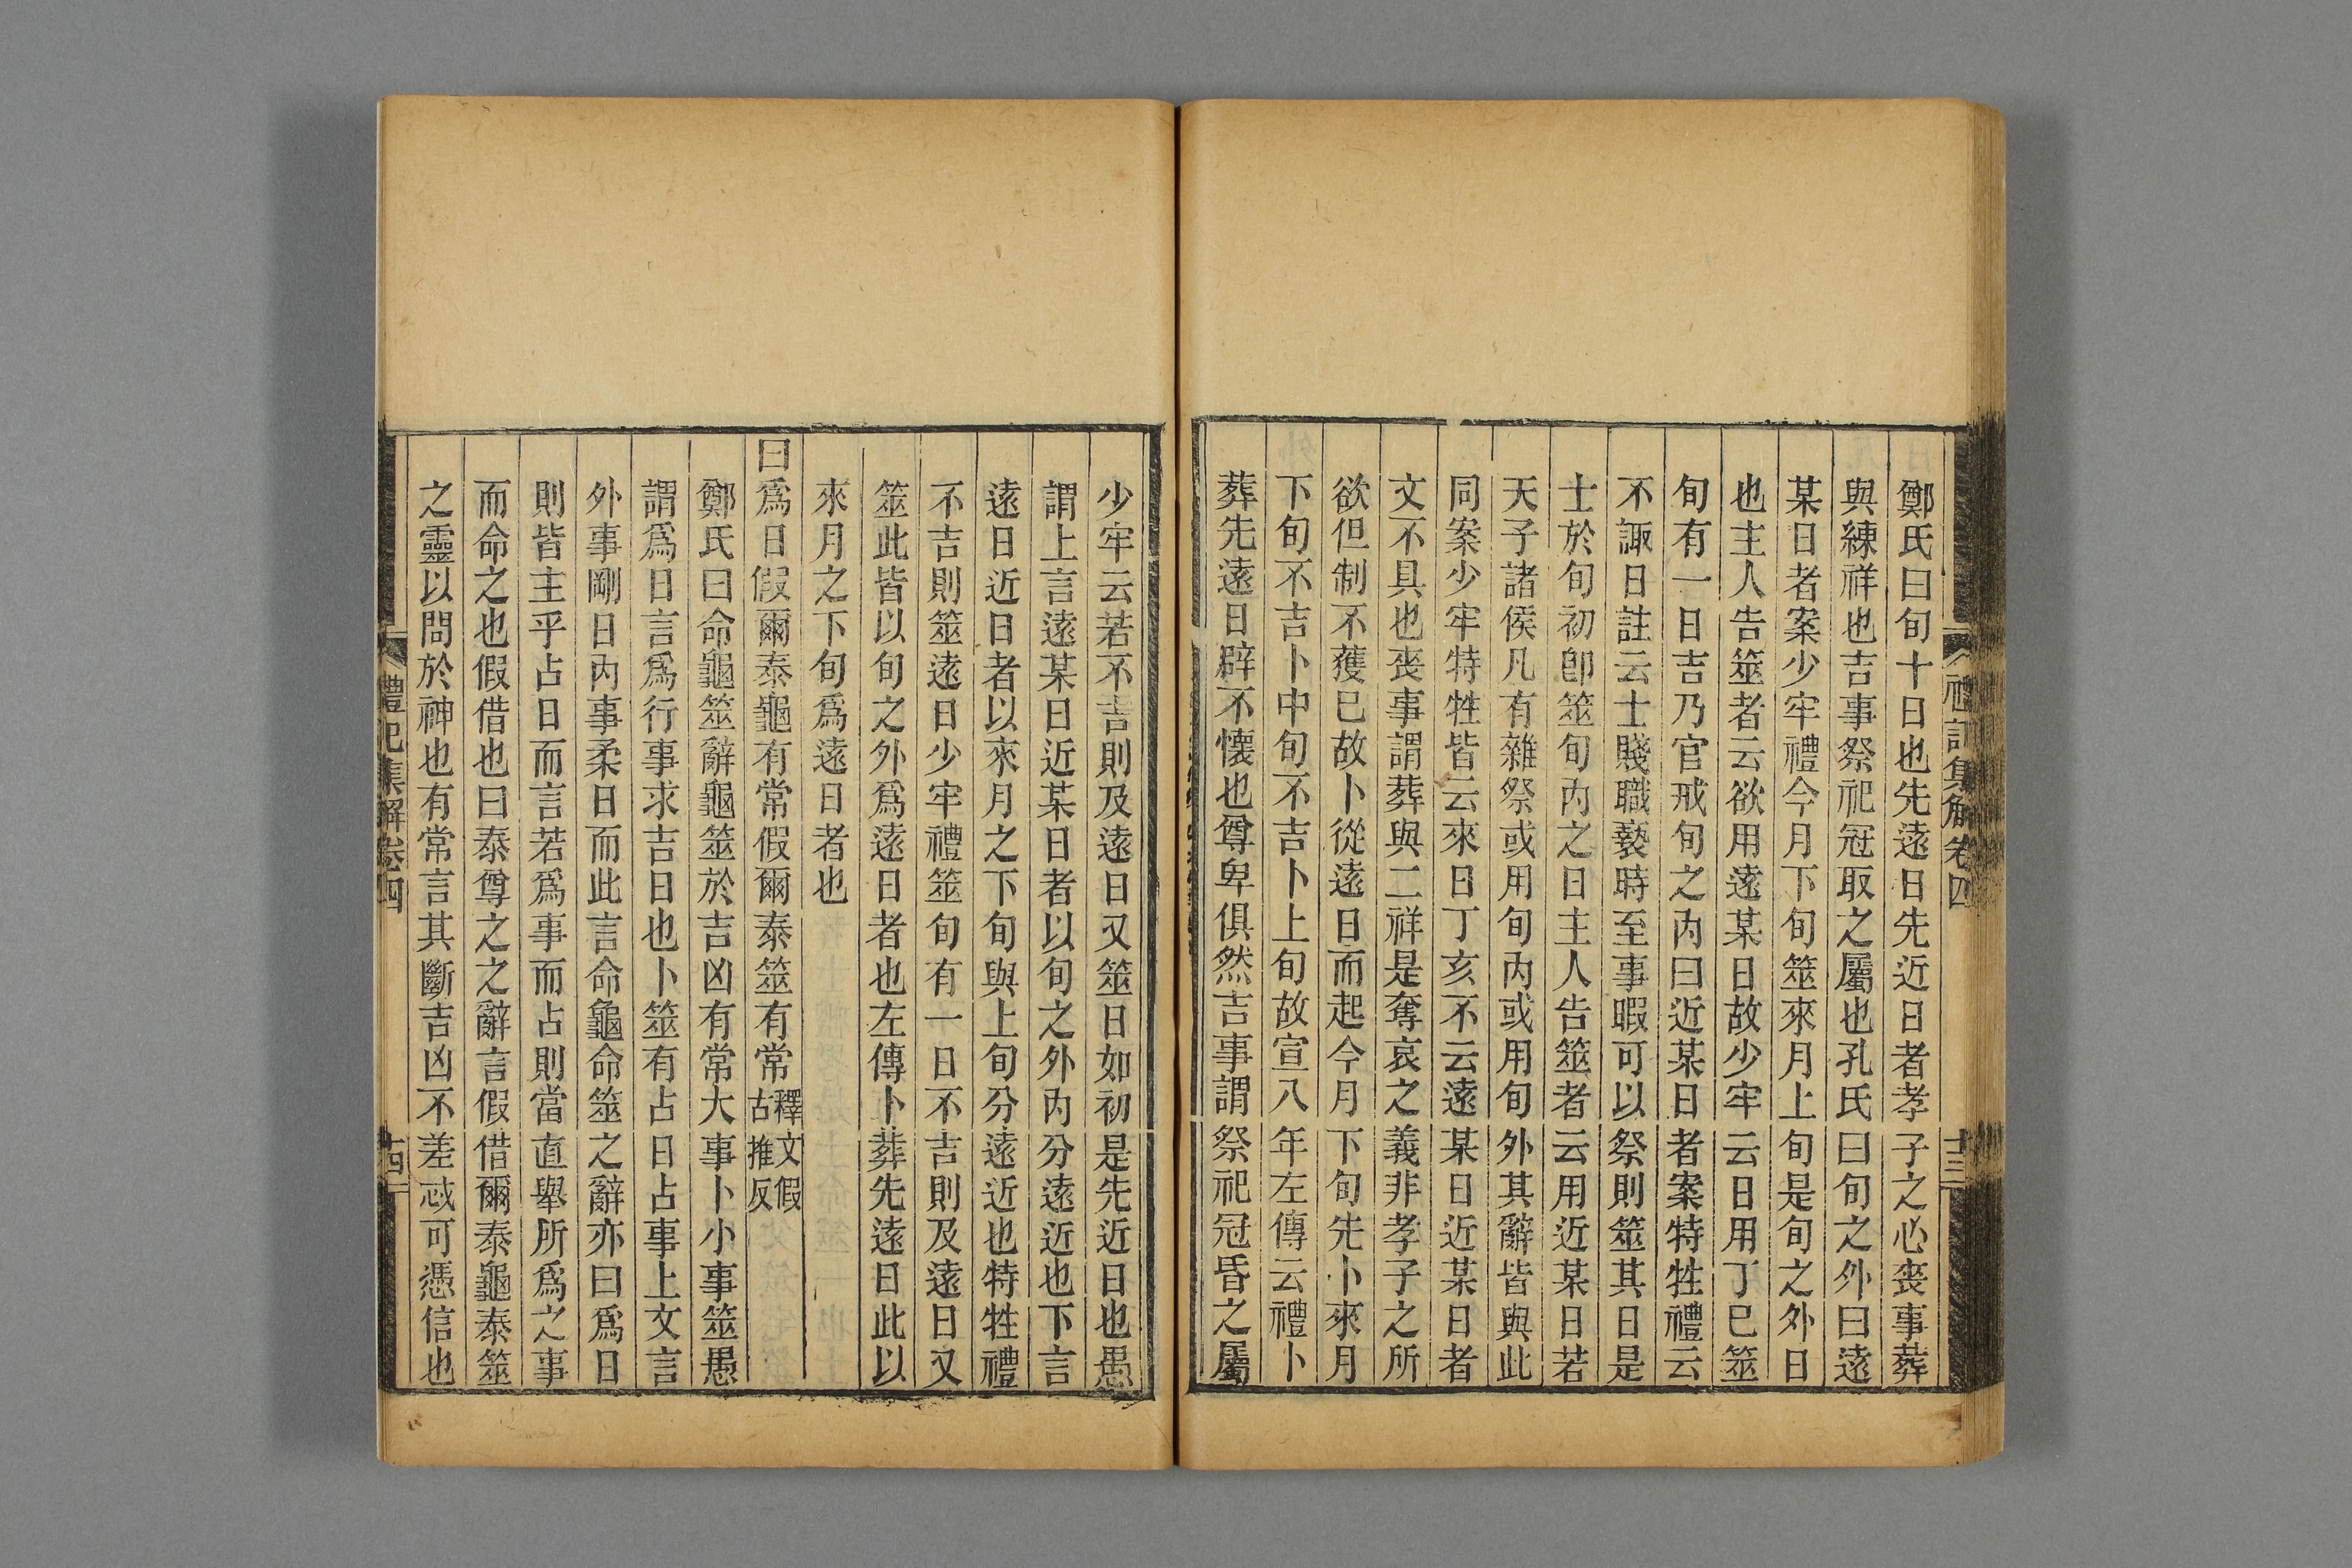 禮記集解卷四
十三
鄭氏曰旬十日也先遠日先近日者孝子之心喪事葬
與練祥也吉事祭祀冠取之屬也孔氏曰旬之外曰遠
某日者案少牢禮今月下旬筮來月上旬是旬之外日
也主人告筮者云欲用遠某日故少牢云日用丁巳筮
旬有一日吉乃官戒旬之內曰近某日者案特牲禮云
不諏日註云士賤職褻時至事暇可以祭則筮其日是
士於旬初卽筮旬內之日主人告筮者云用近某日若
天子諸侯凡有雜祭或用旬內或用旬外其辭皆與此
同案少牢特牲皆云來日丁亥不云遠某日近某日者
文不具也喪事謂葬與二祥是奪哀之義非孝子之所
欲但制不獲已故卜從遠日而起今月下旬先卜來月
下旬不吉卜中旬不吉卜上旬故宣八年左傳云禮卜
葬先遠日辟不懷也尊卑俱然吉事謂祭祀冠昏之屬
少牢云若不吉則及遠日又筮日如初是先近日也愚
謂上言遠某日近某日者以旬之外內分遠近也下言
遠日近日者以來月之下旬與上旬分遠近也特牲禮
不吉則筮遠日少牢禮筮旬有一日不吉則及遠日又
筮此皆以旬之外爲遠日者也左傳卜葬先遠日此以
來月之下旬爲遠日者也
曰爲日假爾泰龜有常假爾泰筮有常釋文假古推反
鄭氏曰命龜筮辭龜筮於吉凶有常大事卜小事筮愚
謂爲日言爲行事求吉日也卜筮有占日占事上文言
外事剛日內事柔日而此言命龜命筮之辭亦曰爲日
則皆主乎占日而言若爲事而占則當直舉所爲之事
而命之也假借也曰泰尊之之辭言假借爾泰龜泰筮
之靈以問於神也有常言其斷吉凶不差忒可憑信也
禮記集解卷四
十四